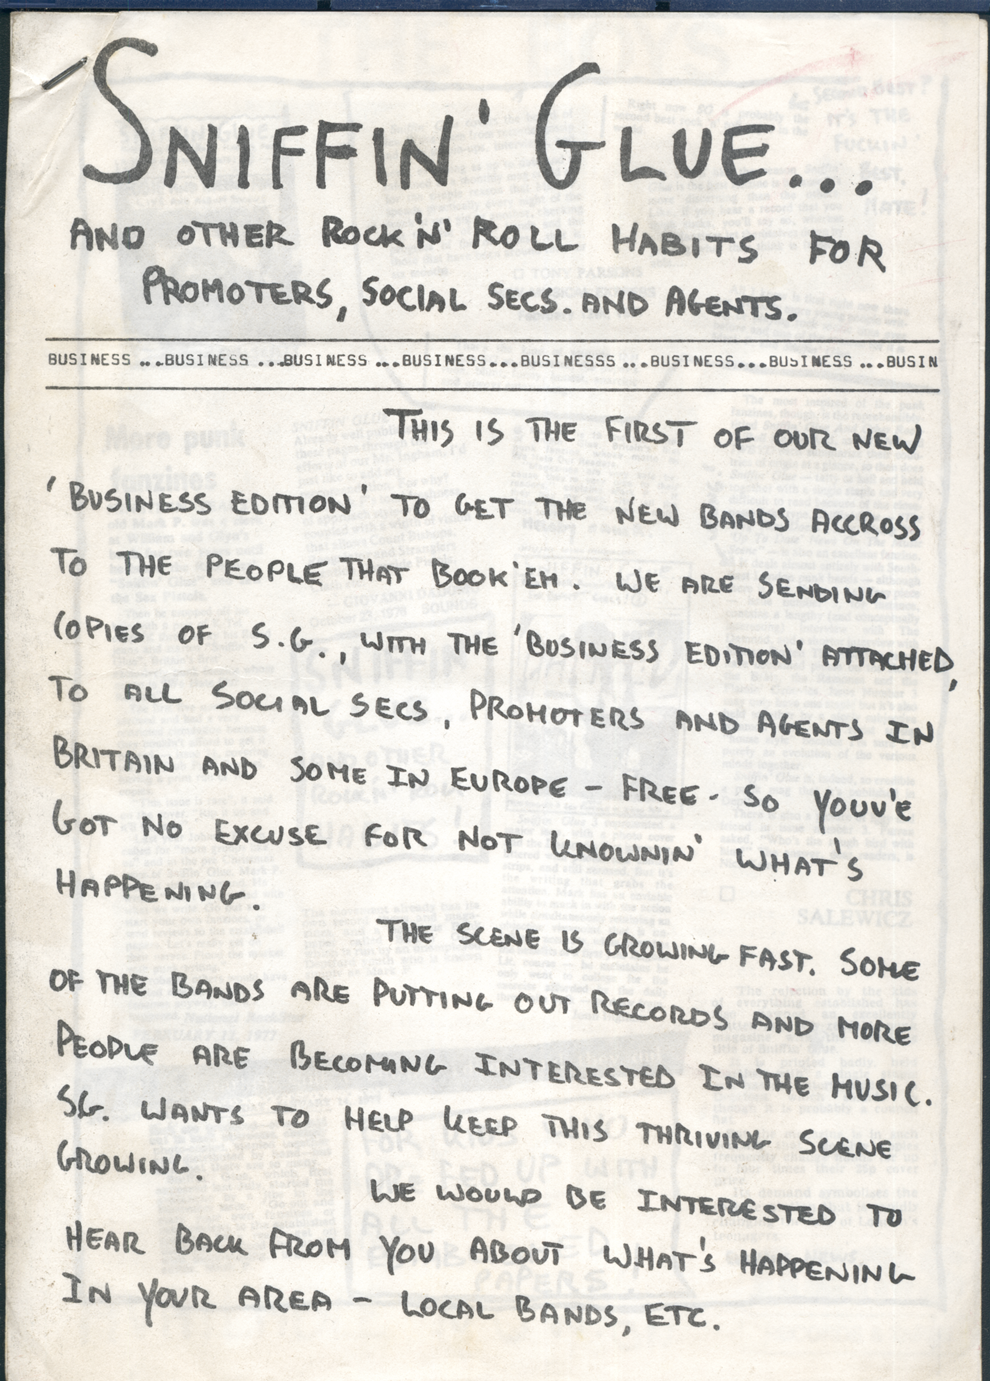 SNIFFIN' GLUE...
AND OTHER ROCK 'N' ROLL HABITS FOR
PROMOTERS, SOCIAL SECS. AND AGENTS.
BUSINESS ...BUSINESS ...BUSINESS ...BUSINESS...BUSINESSS ...BUSINESS...BUSINESS ...BUSIN
THIS IS THE FIRST OF OUR NEW
'BUSINESS EDITION' TO GET THE NEW BANDS ACCROSS
TO THE PEOPLE THAT BOOK 'EM. WE ARE SENDING
COPIES OF S.G., WITH THE 'BUSINESS EDITION' ATTACHED,
TO ALL SOCIAL SECS, PROMOTERS AND AGENTS IN
BRITAIN AND SOME IN EUROPE - FREE. SO YOUV'E
GOT NO EXCUSE FOR NOT KNOWNIN' WHAT'S
HAPPENING.
THE SCENE IS GROWING FAST. SOME
OF THE BANDS ARE PUTTING OUT RECORDS AND MORE
PEOPLE ARE BECOMING INTERESTED IN THE MUSIC.
SG. WANTS TO HELP KEEP THIS THRIVING SCENE
GROWING.
WE WOULD BE INTERESTED TO
HEAR BACK FROM YOU ABOUT WHAT'S HAPPENING
IN YOUR AREA - LOCAL BANDS, ETC.
More punk
fanzines
CHRIS
SALEWICZ